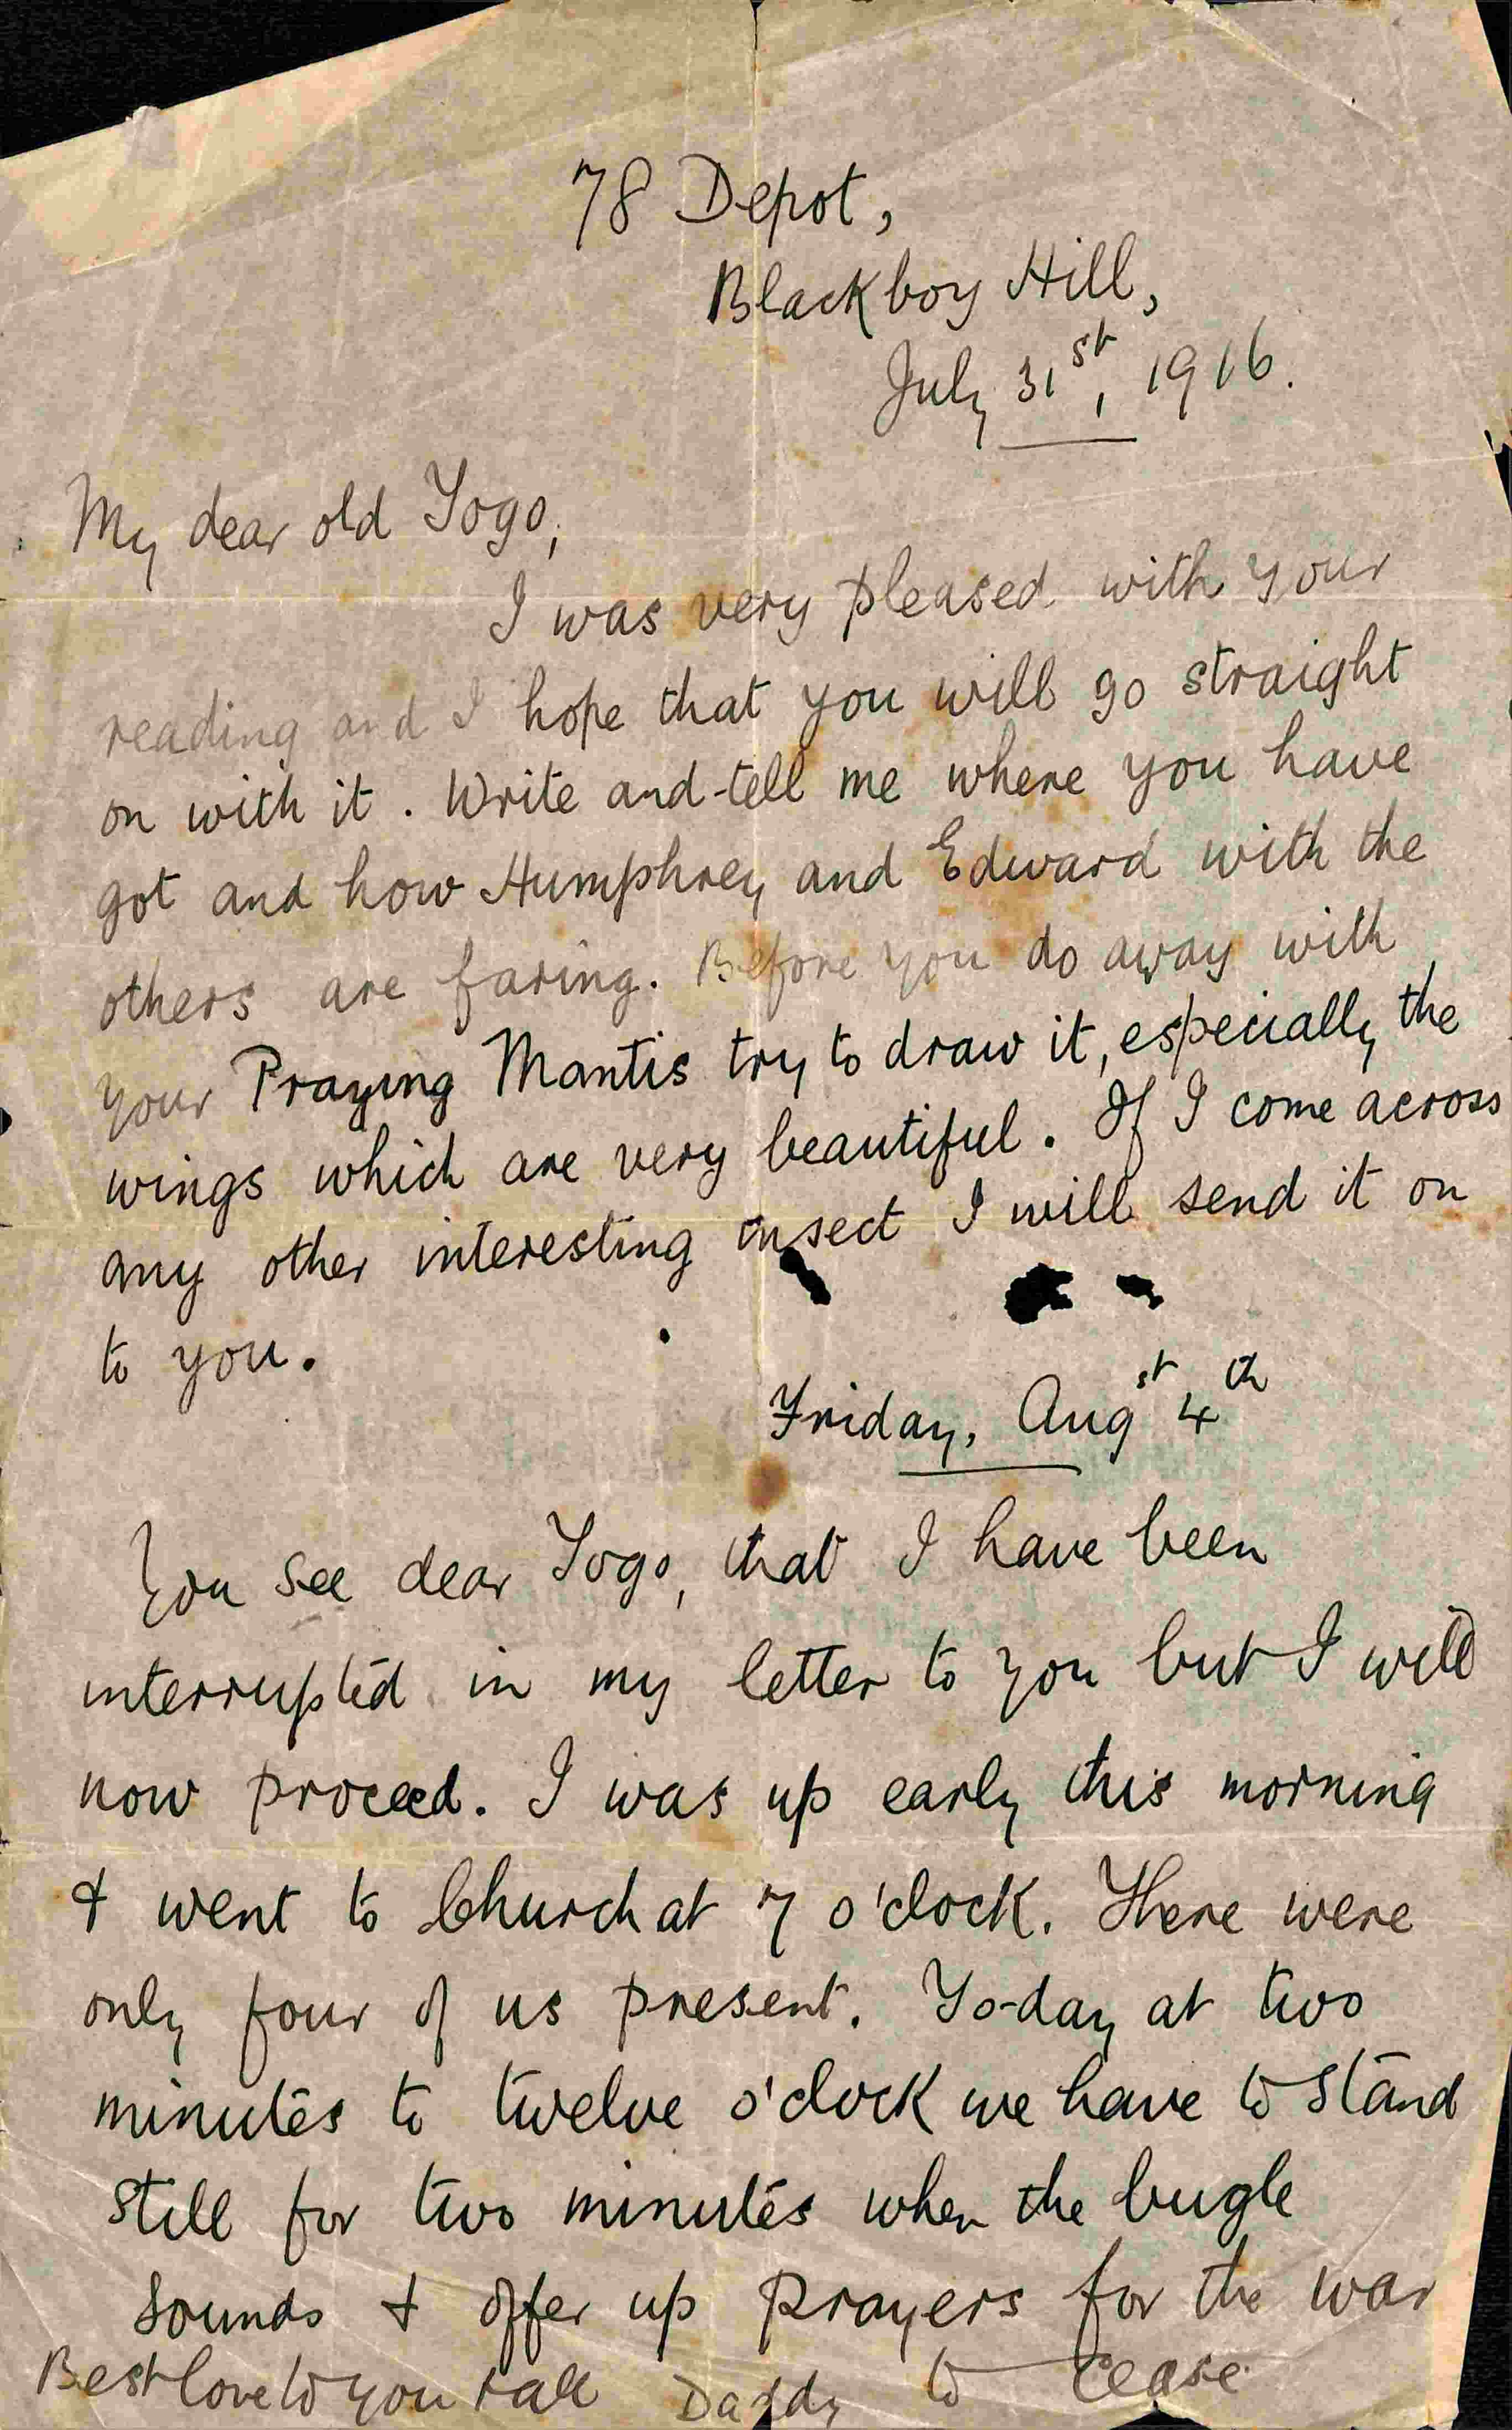 78 Depot,
Blackboy Hill,
July 31st, 1916.
My dear old Togo,
I was very pleased with your
reading and I hope that you will go straight
on with it. Write and tell me where you have
got and how Humphrey and Edward with the
others are faring. Before you do away with
your Praying Mantis try to draw it, especially the
wings which are very beautiful. If I come across
any other interesting insect I will send it on
to you.
Friday, Augst 4th
You see dear Togo, that I have been
interrupted in my letter to you but I will
now proceed. I was up early this morning
& went to Church at 7 o'clock. There were
only four of us present. To-day at two
minutes to twelve o'clock we have to stand
still for two minutes when the bugle
sounds & offer up prayers for the war
to cease.
Best love to you & all Daddy